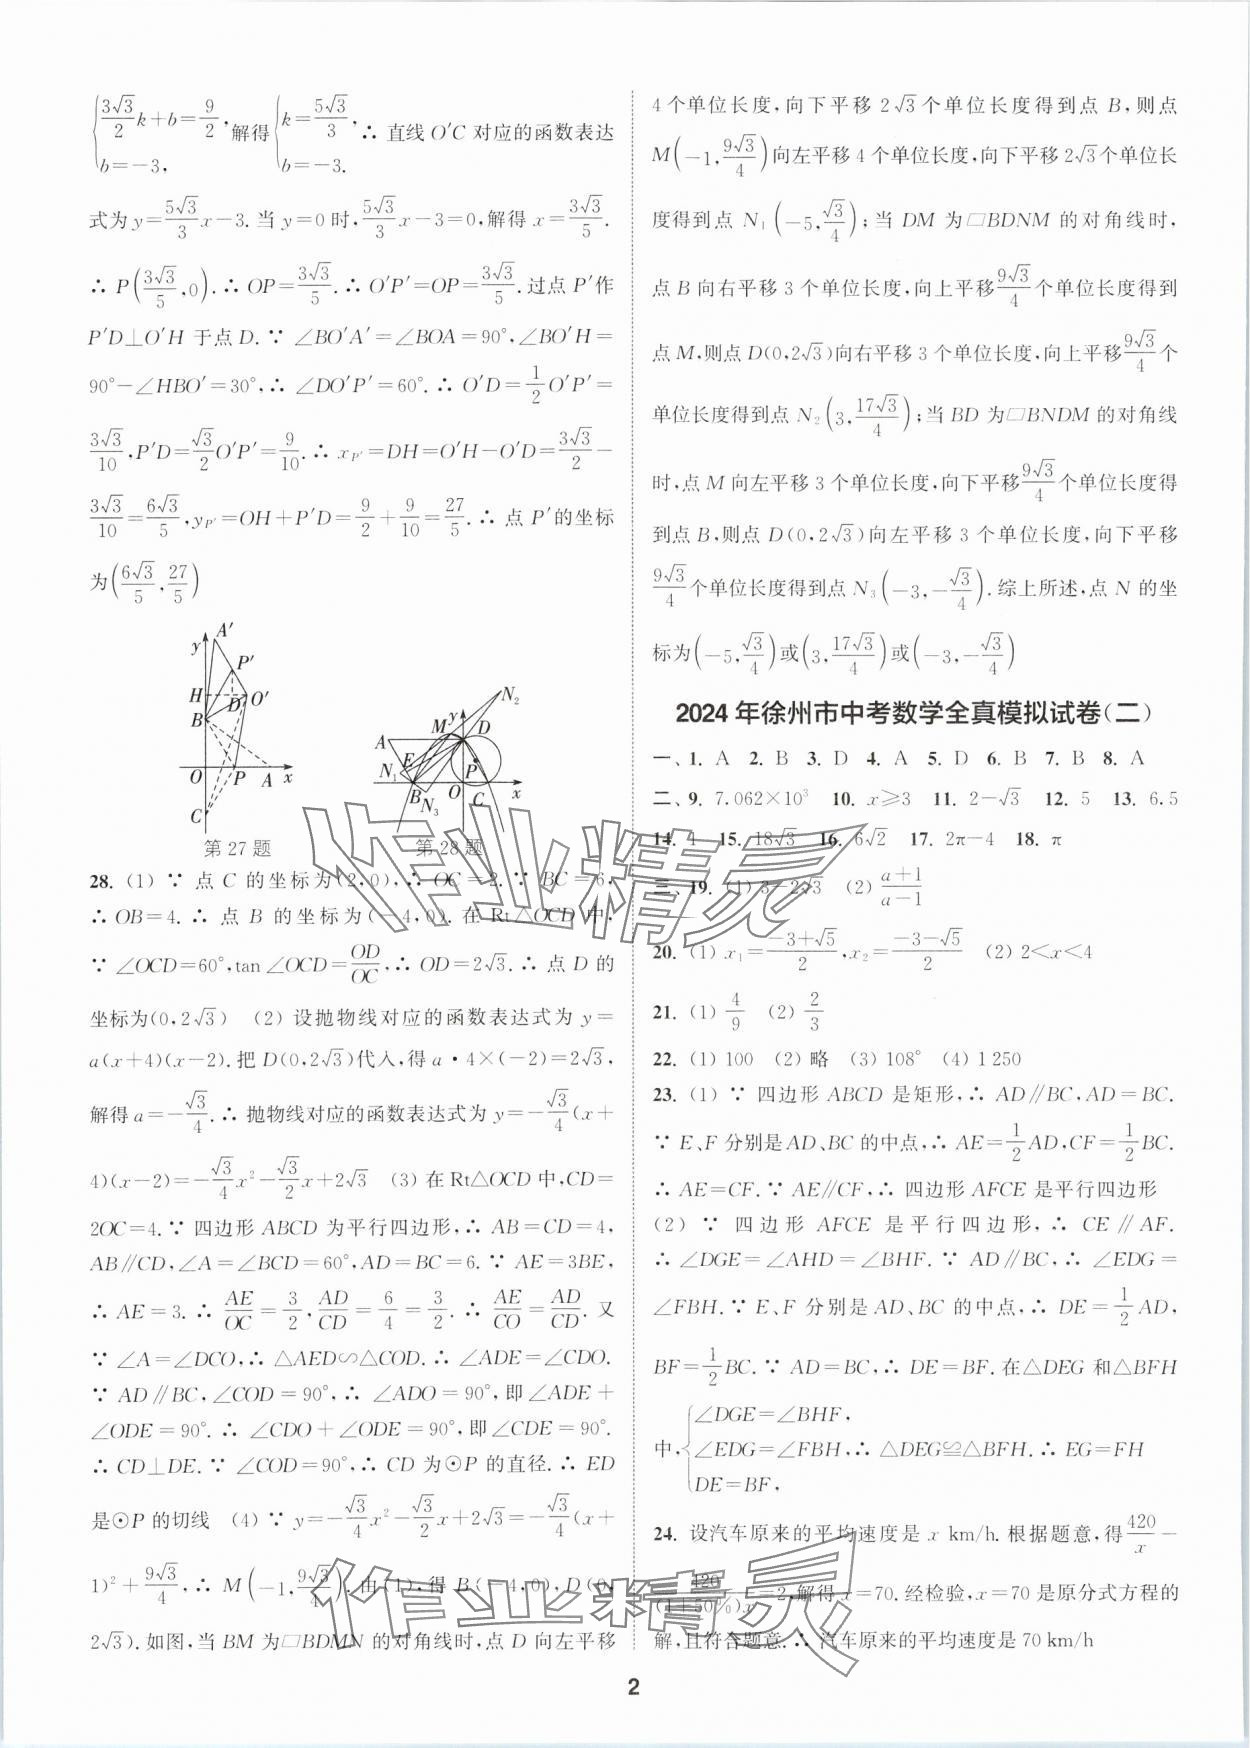 {3√3/2 k+b=9/2, b=-3, 解得 {k=5√3/3, b=-3. ∴ 直线 O′C 对应的函数表达
式为 y=5√3/3 x-3. 当 y=0 时, 5√3/3 x-3=0, 解得 x=3√3/5.
∴ P(3√3/5, 0). ∴ OP=3√3/5. ∴ O′P′=OP=3√3/5. 过点 P′作
P′D⊥O′H 于点 D. ∵ ∠BO′A′=∠BOA=90°, ∠BO′H=
90°-∠HBO′=30°, ∴ ∠DO′P′=60°. ∴ O′D=1/2 O′P′=
3√3/10, P′D=√3/2 O′P′=9/10. ∴ x_P′=DH=O′H-O′D=3√3/2-
3√3/10=6√3/5, y_P′=OH+P′D=9/2+9/10=27/5. ∴ 点 P′的坐标
为(6√3/5, 27/5)
y A′ P′ H D O′ B O P A x C
第 27 题
y N₂ M D A E P N₁ B N₃ O C x
第 28 题
28. (1) ∵ 点 C 的坐标为(2,0), ∴ OC=2. ∵ BC=6,
∴ OB=4. ∴ 点 B 的坐标为(-4,0). 在 Rt△OCD 中,
∵ ∠OCD=60°, tan∠OCD=OD/OC, ∴ OD=2√3. ∴ 点 D 的
坐标为(0,2√3) (2) 设抛物线对应的函数表达式为 y=
a(x+4)(x-2). 把 D(0,2√3)代入, 得 a·4×(-2)=2√3,
解得 a=-√3/4. ∴ 抛物线对应的函数表达式为 y=-√3/4(x+
4)(x-2)=-√3/4 x²-√3/2 x+2√3 (3) 在 Rt△OCD 中, CD=
2OC=4. ∵ 四边形 ABCD 为平行四边形, ∴ AB=CD=4,
AB∥CD, ∠A=∠BCD=60°, AD=BC=6. ∵ AE=3BE,
∴ AE=3. ∴ AE/OC=3/2, AD/CD=6/4=3/2. ∴ AE/CO=AD/CD. 又
∵ ∠A=∠DCO, ∴ △AED∽△COD. ∴ ∠ADE=∠CDO.
∵ AD∥BC, ∠COD=90°, ∴ ∠ADO=90°, 即∠ADE+
∠ODE=90°. ∴ ∠CDO+∠ODE=90°, 即∠CDE=90°.
∴ CD⊥DE. ∵ ∠COD=90°, ∴ CD 为⊙P 的直径. ∴ ED
是⊙P 的切线 (4) ∵ y=-√3/4 x²-√3/2 x+2√3=-√3/4(x+
1)²+9√3/4, ∴ M(-1, 9√3/4). 由(1), 得 B(-4,0), D(0,
2√3). 如图, 当 BM 为▱BDMN 的对角线时, 点 D 向左平移
4 个单位长度, 向下平移 2√3 个单位长度得到点 B, 则点
M(-1, 9√3/4)向左平移 4 个单位长度, 向下平移 2√3 个单位长
度得到点 N₁(-5, √3/4); 当 DM 为▱BDNM 的对角线时,
点 B 向右平移 3 个单位长度, 向上平移 9√3/4 个单位长度得到
点 M, 则点 D(0,2√3)向右平移 3 个单位长度, 向上平移 9√3/4 个
单位长度得到点 N₂(3, 17√3/4); 当 BD 为▱BNDM 的对角线
时, 点 M 向左平移 3 个单位长度, 向下平移 9√3/4 个单位长度得
到点 B, 则点 D(0,2√3)向左平移 3 个单位长度, 向下平移
9√3/4 个单位长度得到点 N₃(-3, -√3/4). 综上所述, 点 N 的坐
标为(-5, √3/4)或(3, 17√3/4)或(-3, -√3/4)
2024 年徐州市中考数学全真模拟试卷(二)
一、1. A 2. B 3. D 4. A 5. D 6. B 7. B 8. A
二、9. 7.062×10³ 10. x≥3 11. 2-√3 12. 5 13. 6.5
14. 4 15. 18√3 16. 6√2 17. 2π-4 18. π
三、19. (1) 3-2√3 (2) a+1/a-1
20. (1) x₁=-3+√5/2, x₂=-3-√5/2 (2) 2<x<4
21. (1) 4/9 (2) 2/3
22. (1) 100 (2) 略 (3) 108° (4) 1 250
23. (1) ∵ 四边形 ABCD 是矩形, ∴ AD∥BC, AD=BC.
∵ E、F 分别是 AD、BC 的中点, ∴ AE=1/2 AD, CF=1/2 BC.
∴ AE=CF. ∵ AE∥CF, ∴ 四边形 AFCE 是平行四边形
(2) ∵ 四边形 AFCE 是平行四边形, ∴ CE∥AF.
∴ ∠DGE=∠AHD=∠BHF. ∵ AD∥BC, ∴ ∠EDG=
∠FBH. ∵ E、F 分别是 AD、BC 的中点, ∴ DE=1/2 AD,
BF=1/2 BC. ∵ AD=BC, ∴ DE=BF. 在△DEG 和△BFH
中, {∠DGE=∠BHF, ∠EDG=∠FBH, DE=BF, ∴ △DEG≌△BFH. ∴ EG=FH
24. 设汽车原来的平均速度是 x km/h. 根据题意, 得 420/x-
420/(1+50%)x=2, 解得 x=70. 经检验, x=70 是原分式方程的
解, 且符合题意. ∴ 汽车原来的平均速度是 70 km/h
作业精灵
作业精灵
2